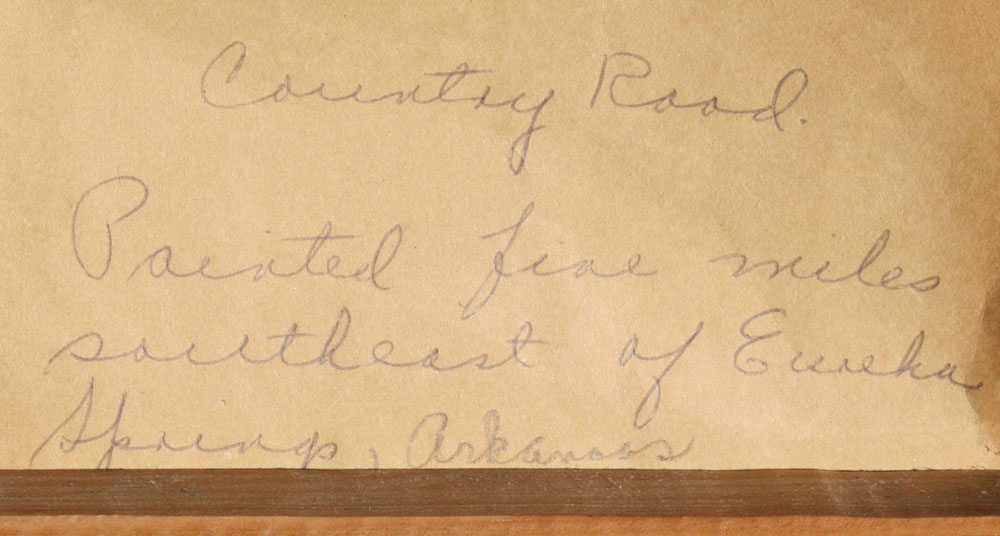 Country Road.
Painted five miles
southeast of Eureka
Springs, Arkansas